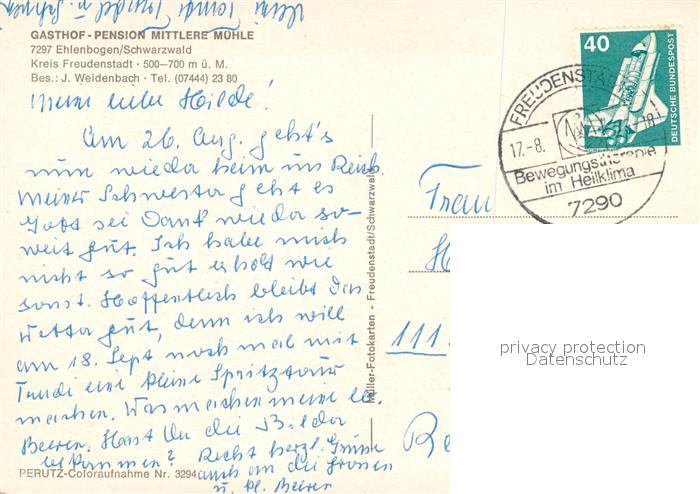 GASTHOF - PENSION MITTLERE MÜHLE
7297 Ehlenbogen/Schwarzwald
Kreis Freudenstadt · 500–700 m ü. M.
Bes.: J. Weidenbach · Tel. (07444) 23 80
Meine liebe Hilde!
Am 26. Aug. geht's
nun wieder heim ins Reich.
Meiner Schwester geht es
Gott sei Dank wieder so-
weit gut. Ich habe mich
nicht so gut erholt wie
sonst. Hoffentlich bleibt das
Wetter gut, denn ich will
am 18. Sept noch mal mit
Trudi eine kleine Spritztour
machen. Was machen meine lb.
Beeren. Hast Du die Bilder
bekommen? Recht herzl. Grüße
auch an die Großen
u. kl. Beeren
PERUTZ-Coloraufnahme Nr. 3294
Müller-Fotokarten - Freudenstadt/Schwarzwald
40
DEUTSCHE BUNDESPOST
FREUDENSTADT
17.-8. 18
Bewegungstherapie
im Heilklima
7290
Frau
111
privacy protection
Datenschutz